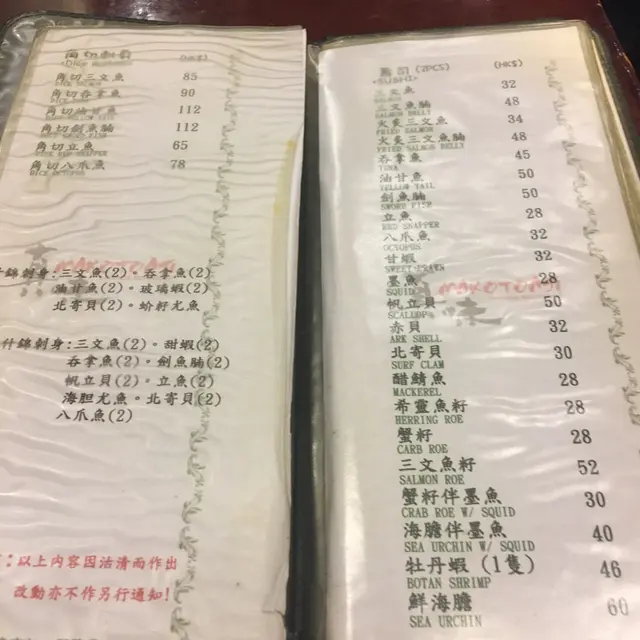 角切刺身 (HK$)
角切三文魚 85
角切吞拿魚 90
角切油甘魚 112
角切劍魚腩 112
角切立魚 65
角切八爪魚 78
什錦刺身:三文魚(2)。吞拿魚(2)
油甘魚(2)。玻璃蝦(2)
北寄貝(2)。蚧籽尤魚
什錦刺身:三文魚(2)。甜蝦(2)
吞拿魚(2)。劍魚腩(2)
帆立貝(2)。立魚(2)
海胆尤魚。北寄貝(2)
八爪魚(2)
:以上內容因沽清而作出
改動亦不作另行通知!
壽司 (2PCS) (HK$)
SUSHI
三文魚 32
三文魚腩 48
SALMON BELLY
火炙三文魚 34
FRIED SALMON
火炙三文魚腩 48
FRIED SALMON BELLY
吞拿魚 45
TUNA
油甘魚 50
YELLOW TAIL
劍魚腩 50
SWORD FISH
立魚 28
RED SNAPPER
八爪魚 32
OCTOPUS
甘蝦 32
SWEET PRAWN
墨魚 28
SQUID
帆立貝 50
SCALLOP
赤貝 32
ARK SHELL
北寄貝 30
SURF CLAM
醋鯖魚 28
MACKEREL
希靈魚籽 28
HERRING ROE
蟹籽 28
CARB ROE
三文魚籽 52
SALMON ROE
蟹籽伴墨魚 30
CRAB ROE W/ SQUID
海膽伴墨魚 40
SEA URCHIN W/ SQUID
牡丹蝦 (1隻) 46
BOTAN SHRIMP
鮮海膽 60
SEA URCHIN